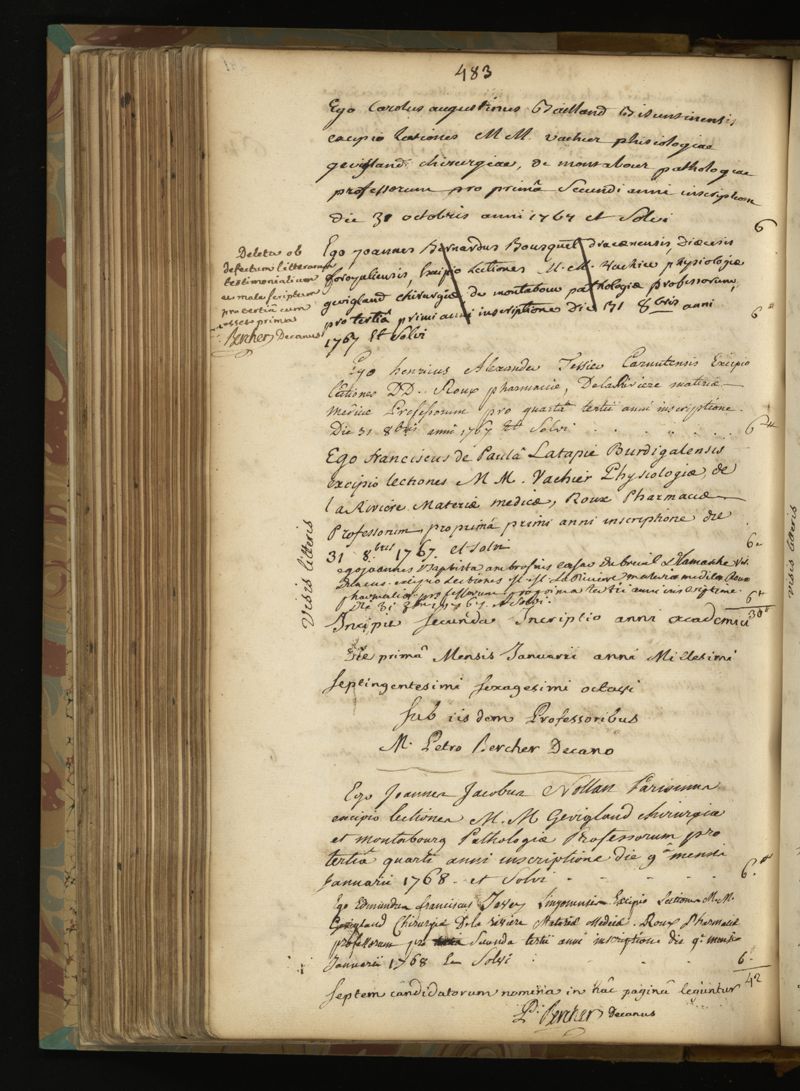 483
Ego Carolus augustinus Bailland
excipio lectiones M M. vachier phisiologiae
gevigland chirurgiae, de montabour pathologiae
professorum pro primâ secundi anni inscriptione
die 31 octobris anni 1767 et Solvi
6
Deleta ob
defectum litterarum
testimonialium
et male scriptum
pro tertiâ cum
esset prima
Bercher Decanus
Ego Joannes Bernardus Bousquet dracenensis diœcesis
forojuliensis, Excipio Lectiones M. M. Vachier physiologiæ
gevigland chirurgiæ de montabour pathologiæ professorum,
pro tertiâ primi anni inscriptione Die 31 8bris anni
1767 Et Solvi
6
Ego henricus Alexander Tessier Carnutensis Excipio
lectiones DD. Roux pharmaciæ, De la Riviere materiæ
medicæ Professorum pro quartâ tertii anni inscriptione.
Die 31 8bris anni 1767 Et Solvi
6
Ego Franciscus de Paulâ Latapie Burdigalensis
excipio lectiones M M. Vachier Physiologiæ, de
la Riviere Materiæ medicæ, Roux Pharmaciæ
Professorum, pro primâ primi anni inscriptione die
31 8bris 1767. et solvi
6
Visis litteris
ego joannes Baptista ambrosius
excipio Lectiones M. M. La Riviere materiæ medicæ Roux
pharmaciæ professorum pro prima tertii anni inscriptione
die 31 8bris 1767. et Solvi.
6
30
Incipit secunda Inscriptio anni academici
Die primâ Mensis Januarii anni Millesimi
septingentesimi sexagesimi octavi
sub iisdem Professoribus
M. Petro Bercher Decano
Ego Joannes Jacobus Nollan Parisinus
excipio lectiones M. M Gevigland chirurgiæ
et montabourg Pathologiæ Professorum pro
tertiâ quarti anni inscriptione die 9â mensis
Januarii 1768. et Solvi
6
Ego Edmundus franciscus Lingonensis Excipio Lectiones M. M.
Gevigland Chirurgiæ De la riviere Materiæ Medicæ. Roux Pharmaciæ
professorum pro secunda tertii anni inscriptione die 9â mensis
Januarii 1768 Et Solvi
6
42
septem candidatorum nomina in hâc paginâ leguntur
Bercher decanus
visis litteris